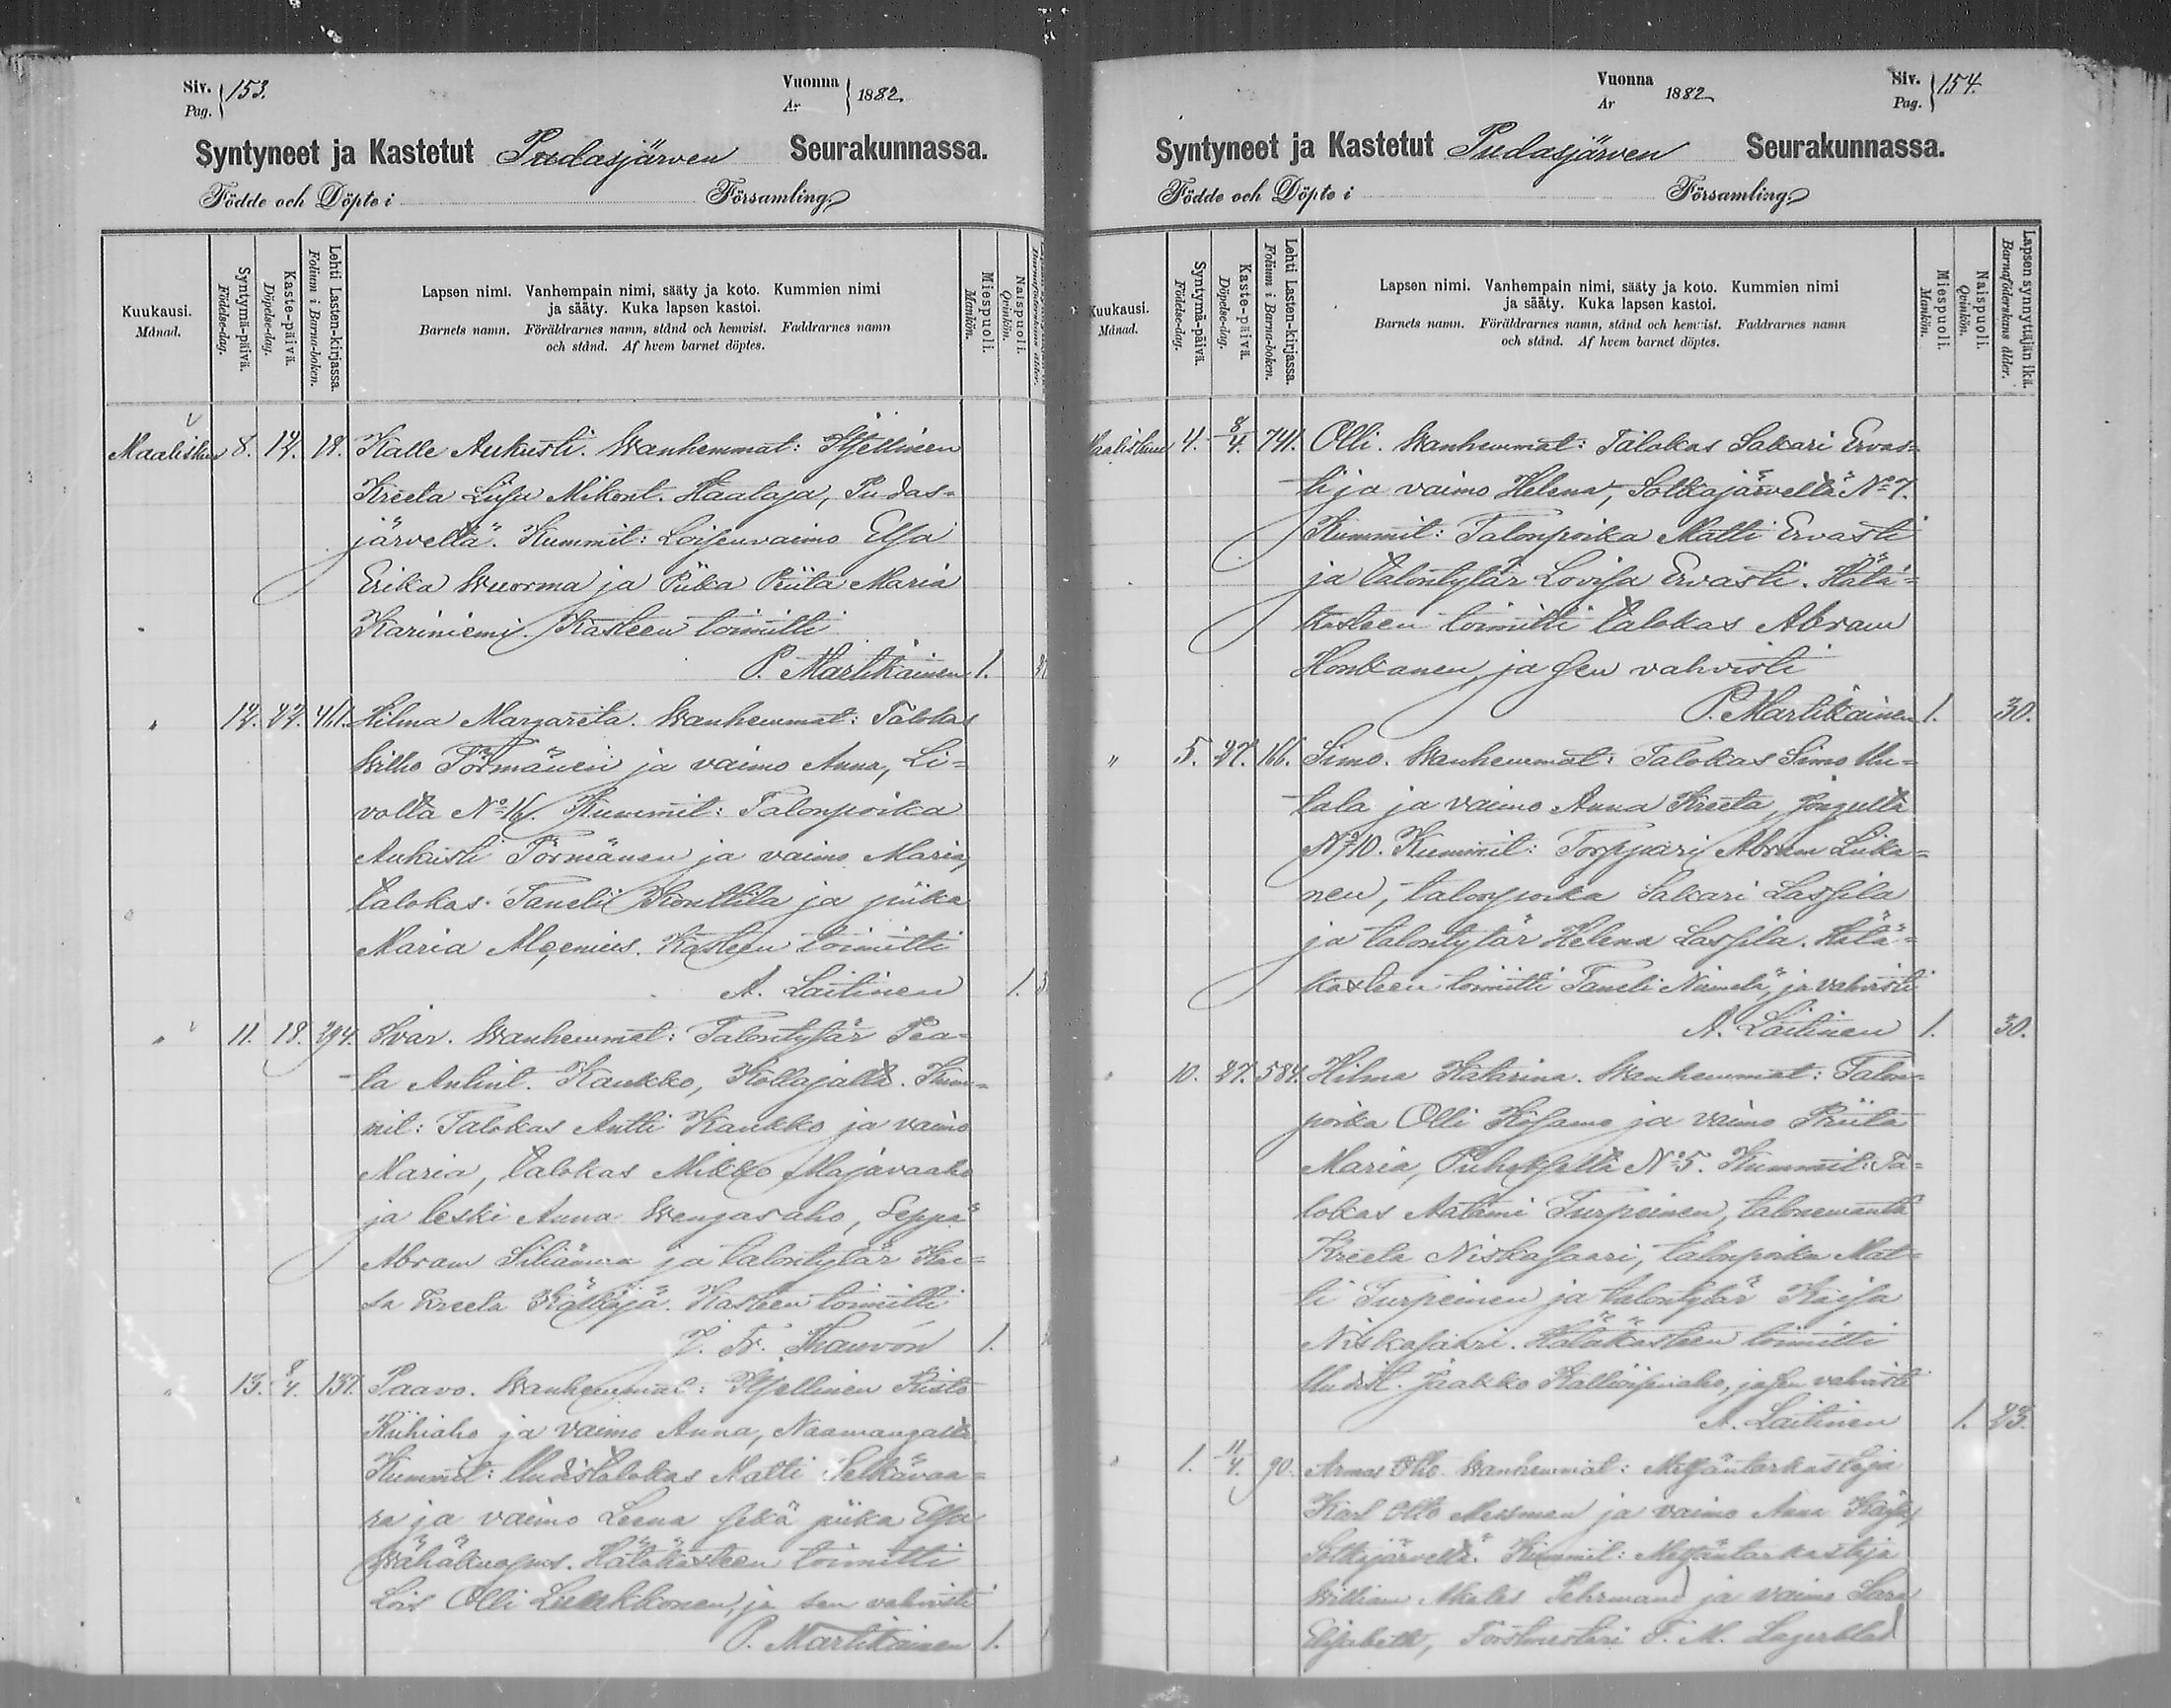 Siv. Pag. } 153.
Vuonna År } 1882.
Syntyneet ja Kastetut Pudasjärven Seurakunnassa.
Födde och Döpte i Församling.
Kuukausi. Månad.
Syntymä-päivä. Födelse-dag.
Kaste-päivä. Döpelse-dag.
Lehti Lasten-kirjassa. Folium i Barna-boken.
Lapsen nimi. Vanhempain nimi, sääty ja koto. Kummien nimi
ja sääty. Kuka lapsen kastoi.
Barnets namn. Föräldrarnes namn, stånd och hemvist. Faddrarnes namn
och stånd. Af hvem barnet döptes.
Miespuoli. Mankön.
Naispuoli. Qvinkön.
Maaliskuu 8. 12. 18. Kalle Aukusti. Wanhemmat: Itsellinen
Kreeta Liisa Mikont. Haataja, Pudas-
järveltä. Kummit: Loisenvaimo Elsa
Erika Wuorma ja Piika Priita Maria
Kariniemi. Kasteen toimitti
P. Martikainen 1.
" 12. 22. 461. Hilma Margareta. Wanhemmat: Talokas
Wilho Törmänen ja vaimo Anna, Li-
volta No 16. Kummit: Talonpoika
Aukusti Törmänen ja vaimo Maria,
talokas Taneli Konttila ja piika
Maria. Kasteen toimitti
A. Laitinen 1.
" 11. 18. 294. Ivar. Wanhemmat: Talontytär Pea-
ta Antint. Kaukko, Kollajalta. Kum-
mit: Talokas Antti Kaukko ja vaimo
Maria, talokas Mikko Majavaaho
ja leski Anna Wengasaho, Seppä
Abram ja talontytär Kai-
sa Kreeta Kätkäjä. Kasteen toimitti
J. Fr. Thauvón 1.
" 13. 8/4. 137. Paavo. Wanhemmat: Itsellinen Risto
Riihiaho ja vaimo Anna, Naamangalta.
Kummit: Uudistalokas Matti Selkävaa-
ra ja vaimo Leena sekä piika Elsa
Wähäkuopus. Hätäkasteen toimitti
Lois Olli Luukkonen, ja sen vahvisti
P. Martikainen 1.
Vuonna År 1882.
Siv. Pag. } 154.
Syntyneet ja Kastetut Pudasjärven Seurakunnassa.
Födde och Döpte i Församling.
Kuukausi. Månad.
Syntymä-päivä. Födelse-dag.
Kaste-päivä. Döpelse-dag.
Lehti Lasten-kirjassa. Folium i Barna-boken.
Lapsen nimi. Vanhempain nimi, sääty ja koto. Kummien nimi
ja sääty. Kuka lapsen kastoi.
Barnets namn. Föräldrarnes namn, stånd och hemvist. Faddrarnes namn
och stånd. Af hvem barnet döptes.
Miespuoli. Mankön.
Naispuoli. Qvinkön.
Lapsen synnyttäjän ikä. Barnaföderskans ålder.
Maaliskuu 4. 8/4. 741. Olli. Wanhemmat: Talokas Sakari Ervas-
ti ja vaimo Helena, Sotkajärveltä No 7.
Kummit: Talonpoika Matti Ervasti
ja talontytär Lovisa Ervasti. Hätä-
kasteen toimitti talokas Abram
Honkanen, ja sen vahvisti
P. Martikainen 1. 30.
" 5. 27. 166. Simo. Wanhemmat: Talokas Simo Uu-
tala ja vaimo Anna Kreeta, Jongulta
No 10. Kummit: Torppari Abram Liika-
nen, talonpoika Sakari Lassila
ja talontytär Helena Lassila. Hätä-
kasteen toimitti Taneli Niemelä, ja vahvisti
A. Laitinen 1. 30.
" 10. 27. 584. Hilma Katarina. Wanhemmat: Talon-
poika Olli Kosamo ja vaimo Priita
Maria, Puhokselta No 5. Kummit: Ta-
lokas Aatami Turpeinen, talonemäntä
Kreeta Niskasaari, talonpoika Mat-
ti Turpeinen ja talontytär Kaisa
Niskasaari. Hätäkasteen toimitti
Uudist. Jaakko, ja sen vahvisti
A. Laitinen 1. 23.
" 1. 11/4. 90. Armas Otto. Wanhemmat: Metsäntarkastaja
Karl Otto Messman ja vaimo Anna Kaisa,
Sotkajärveltä. Kummit: Metsäntarkastaja
William Pehrmand ja vaimo Sara
Elisabeth, Forstmestari F. M. Lagerblad